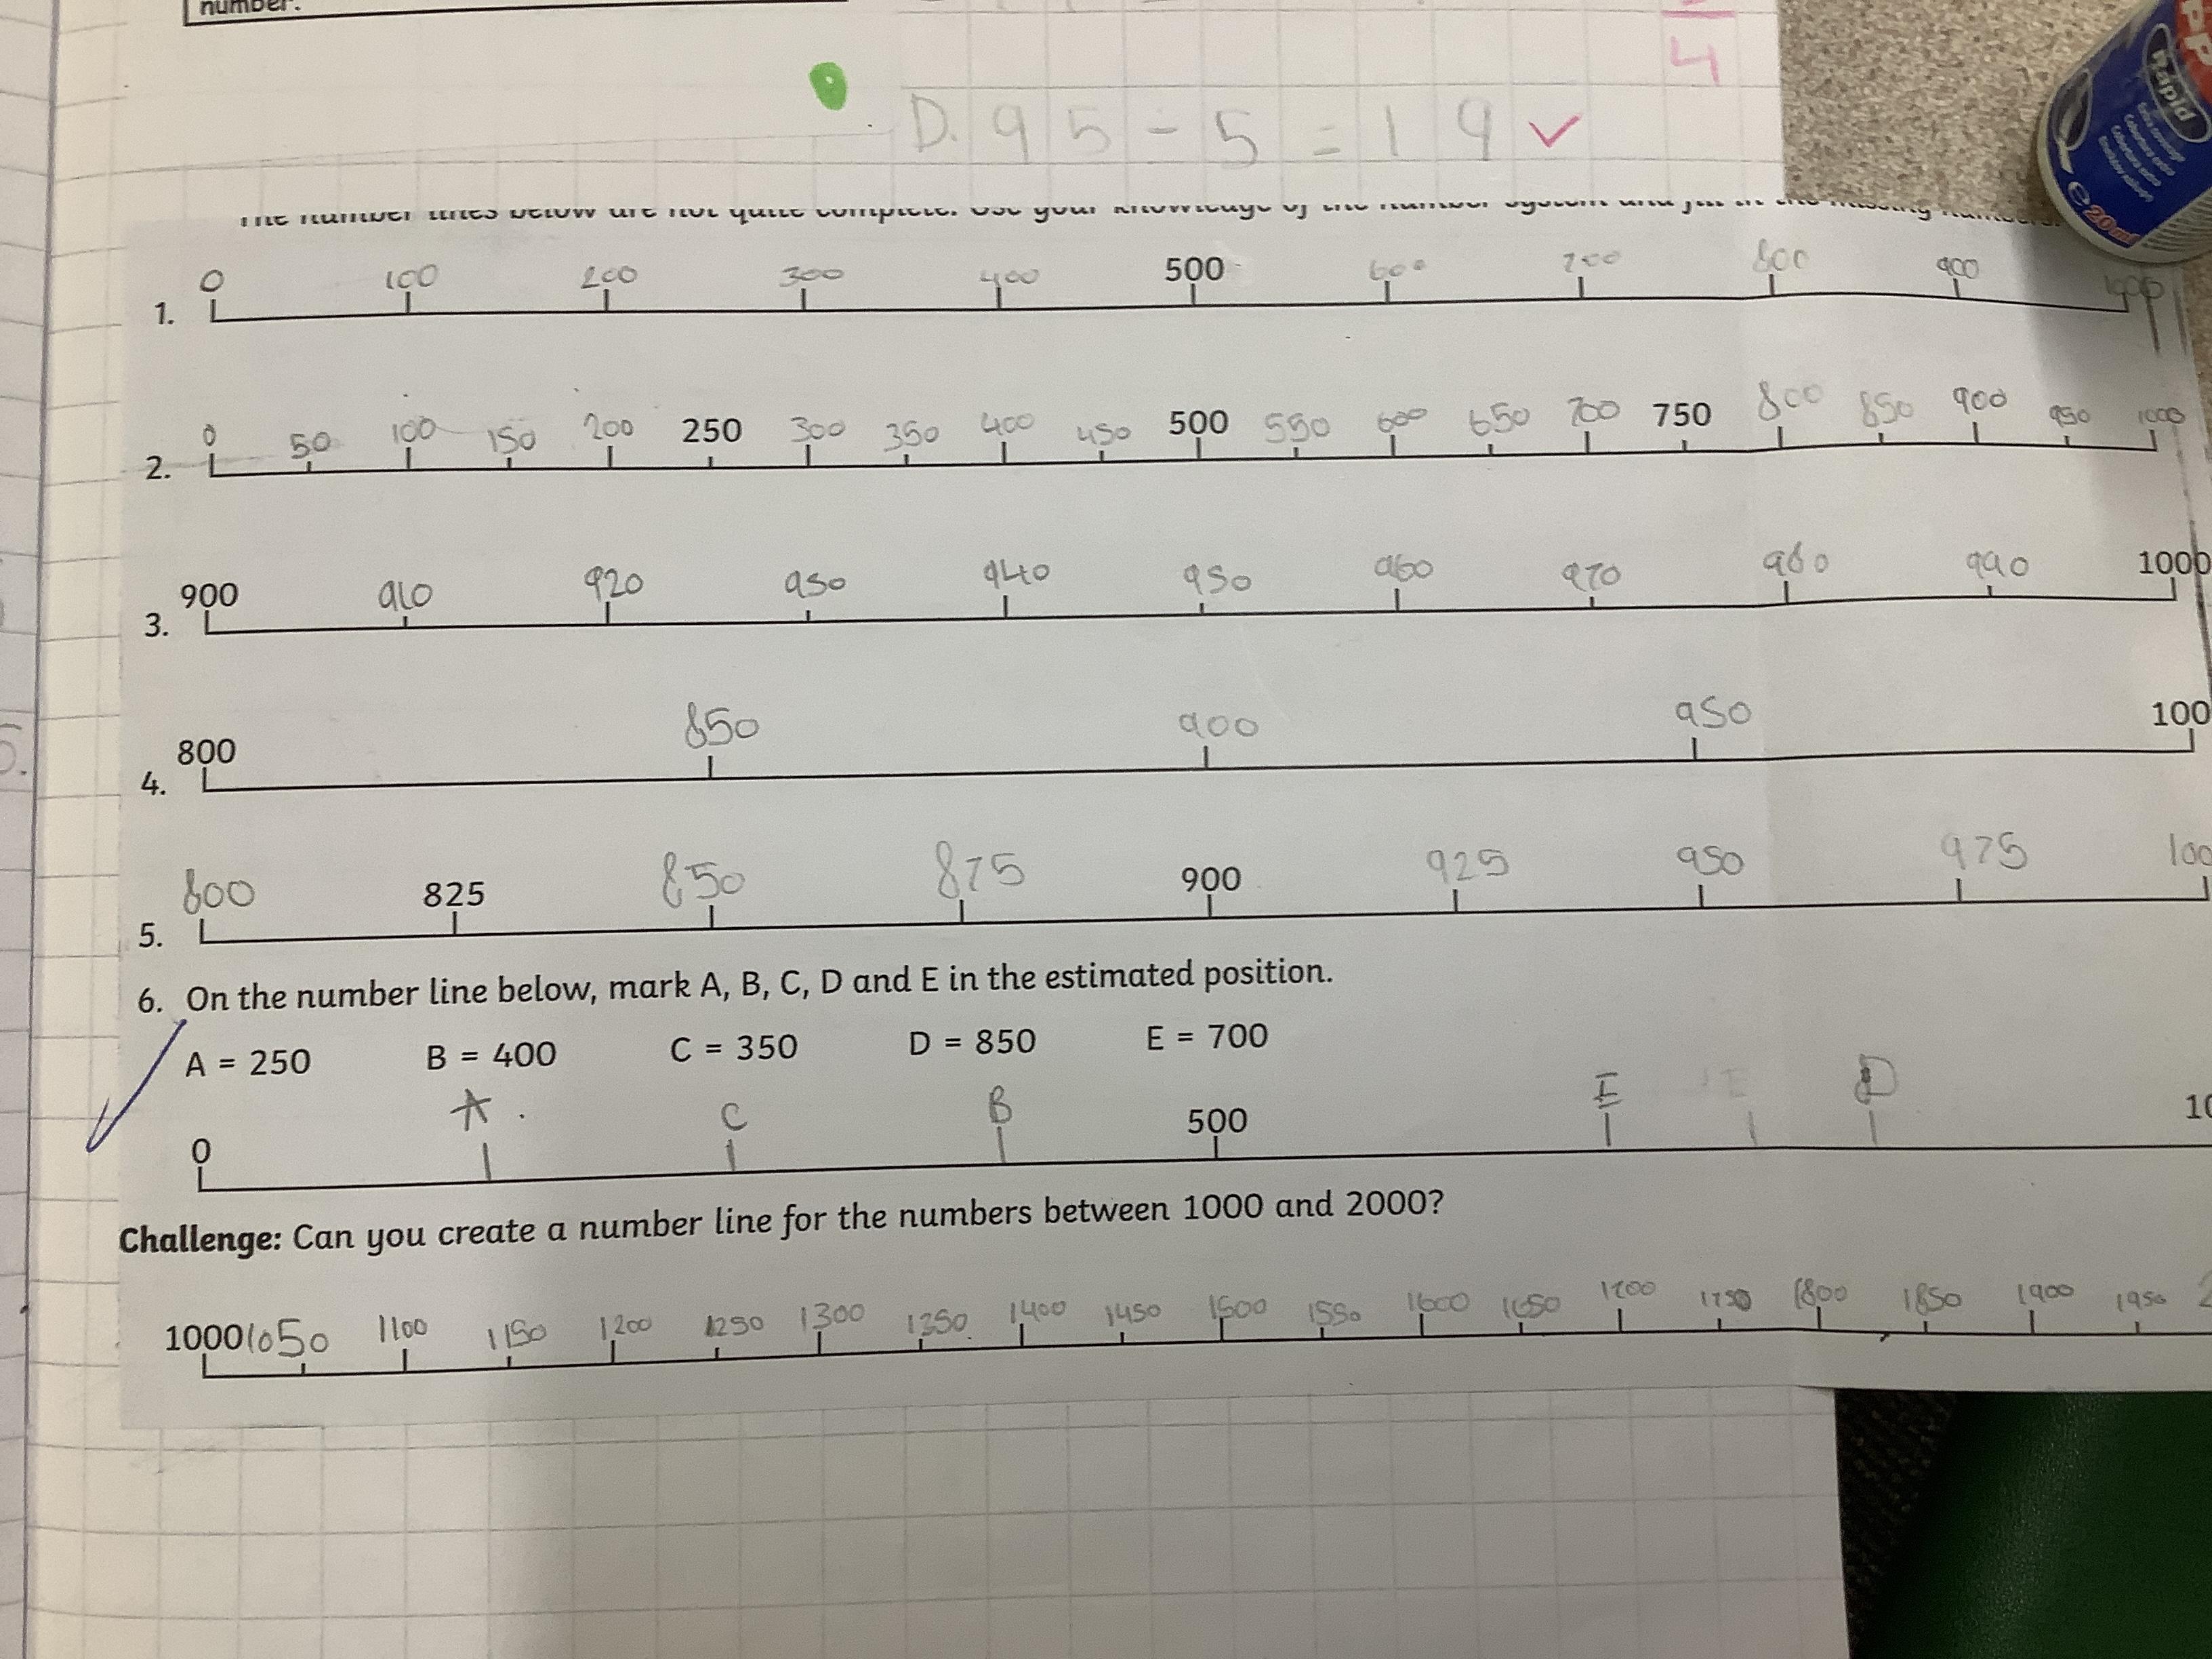 number.
4
D. 95 ÷ 5 = 19 ✓
The number lines below are not quite complete. Use your knowledge of the number system and fill in the missing numbers.
Rapid
20ml
0 100 200 300 400 500 600 700 800 900 1000
1.
0 50 100 150 200 250 300 350 400 450 500 550 600 650 700 750 800 850 900 950 1000
2.
900 910 920 950 940 950 960 970 980 990 1000
3.
800 850 900 950 100
4.
800 825 850 875 900 925 950 975 100
5.
6. On the number line below, mark A, B, C, D and E in the estimated position.
A = 250 B = 400 C = 350 D = 850 E = 700
A C B E E D
0 500 10
Challenge: Can you create a number line for the numbers between 1000 and 2000?
1000 1050 1100 1150 1200 1250 1300 1350 1400 1450 1500 1550 1600 1650 1700 1750 1800 1850 1900 1950 2